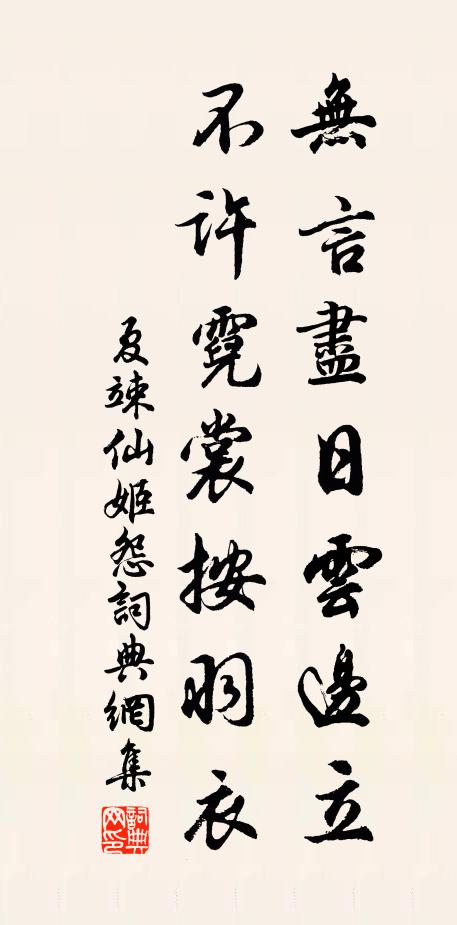 無言盡日雲邊立
不許霓裳按羽衣
夏竦仙姬怨詞典網集
詞典网印